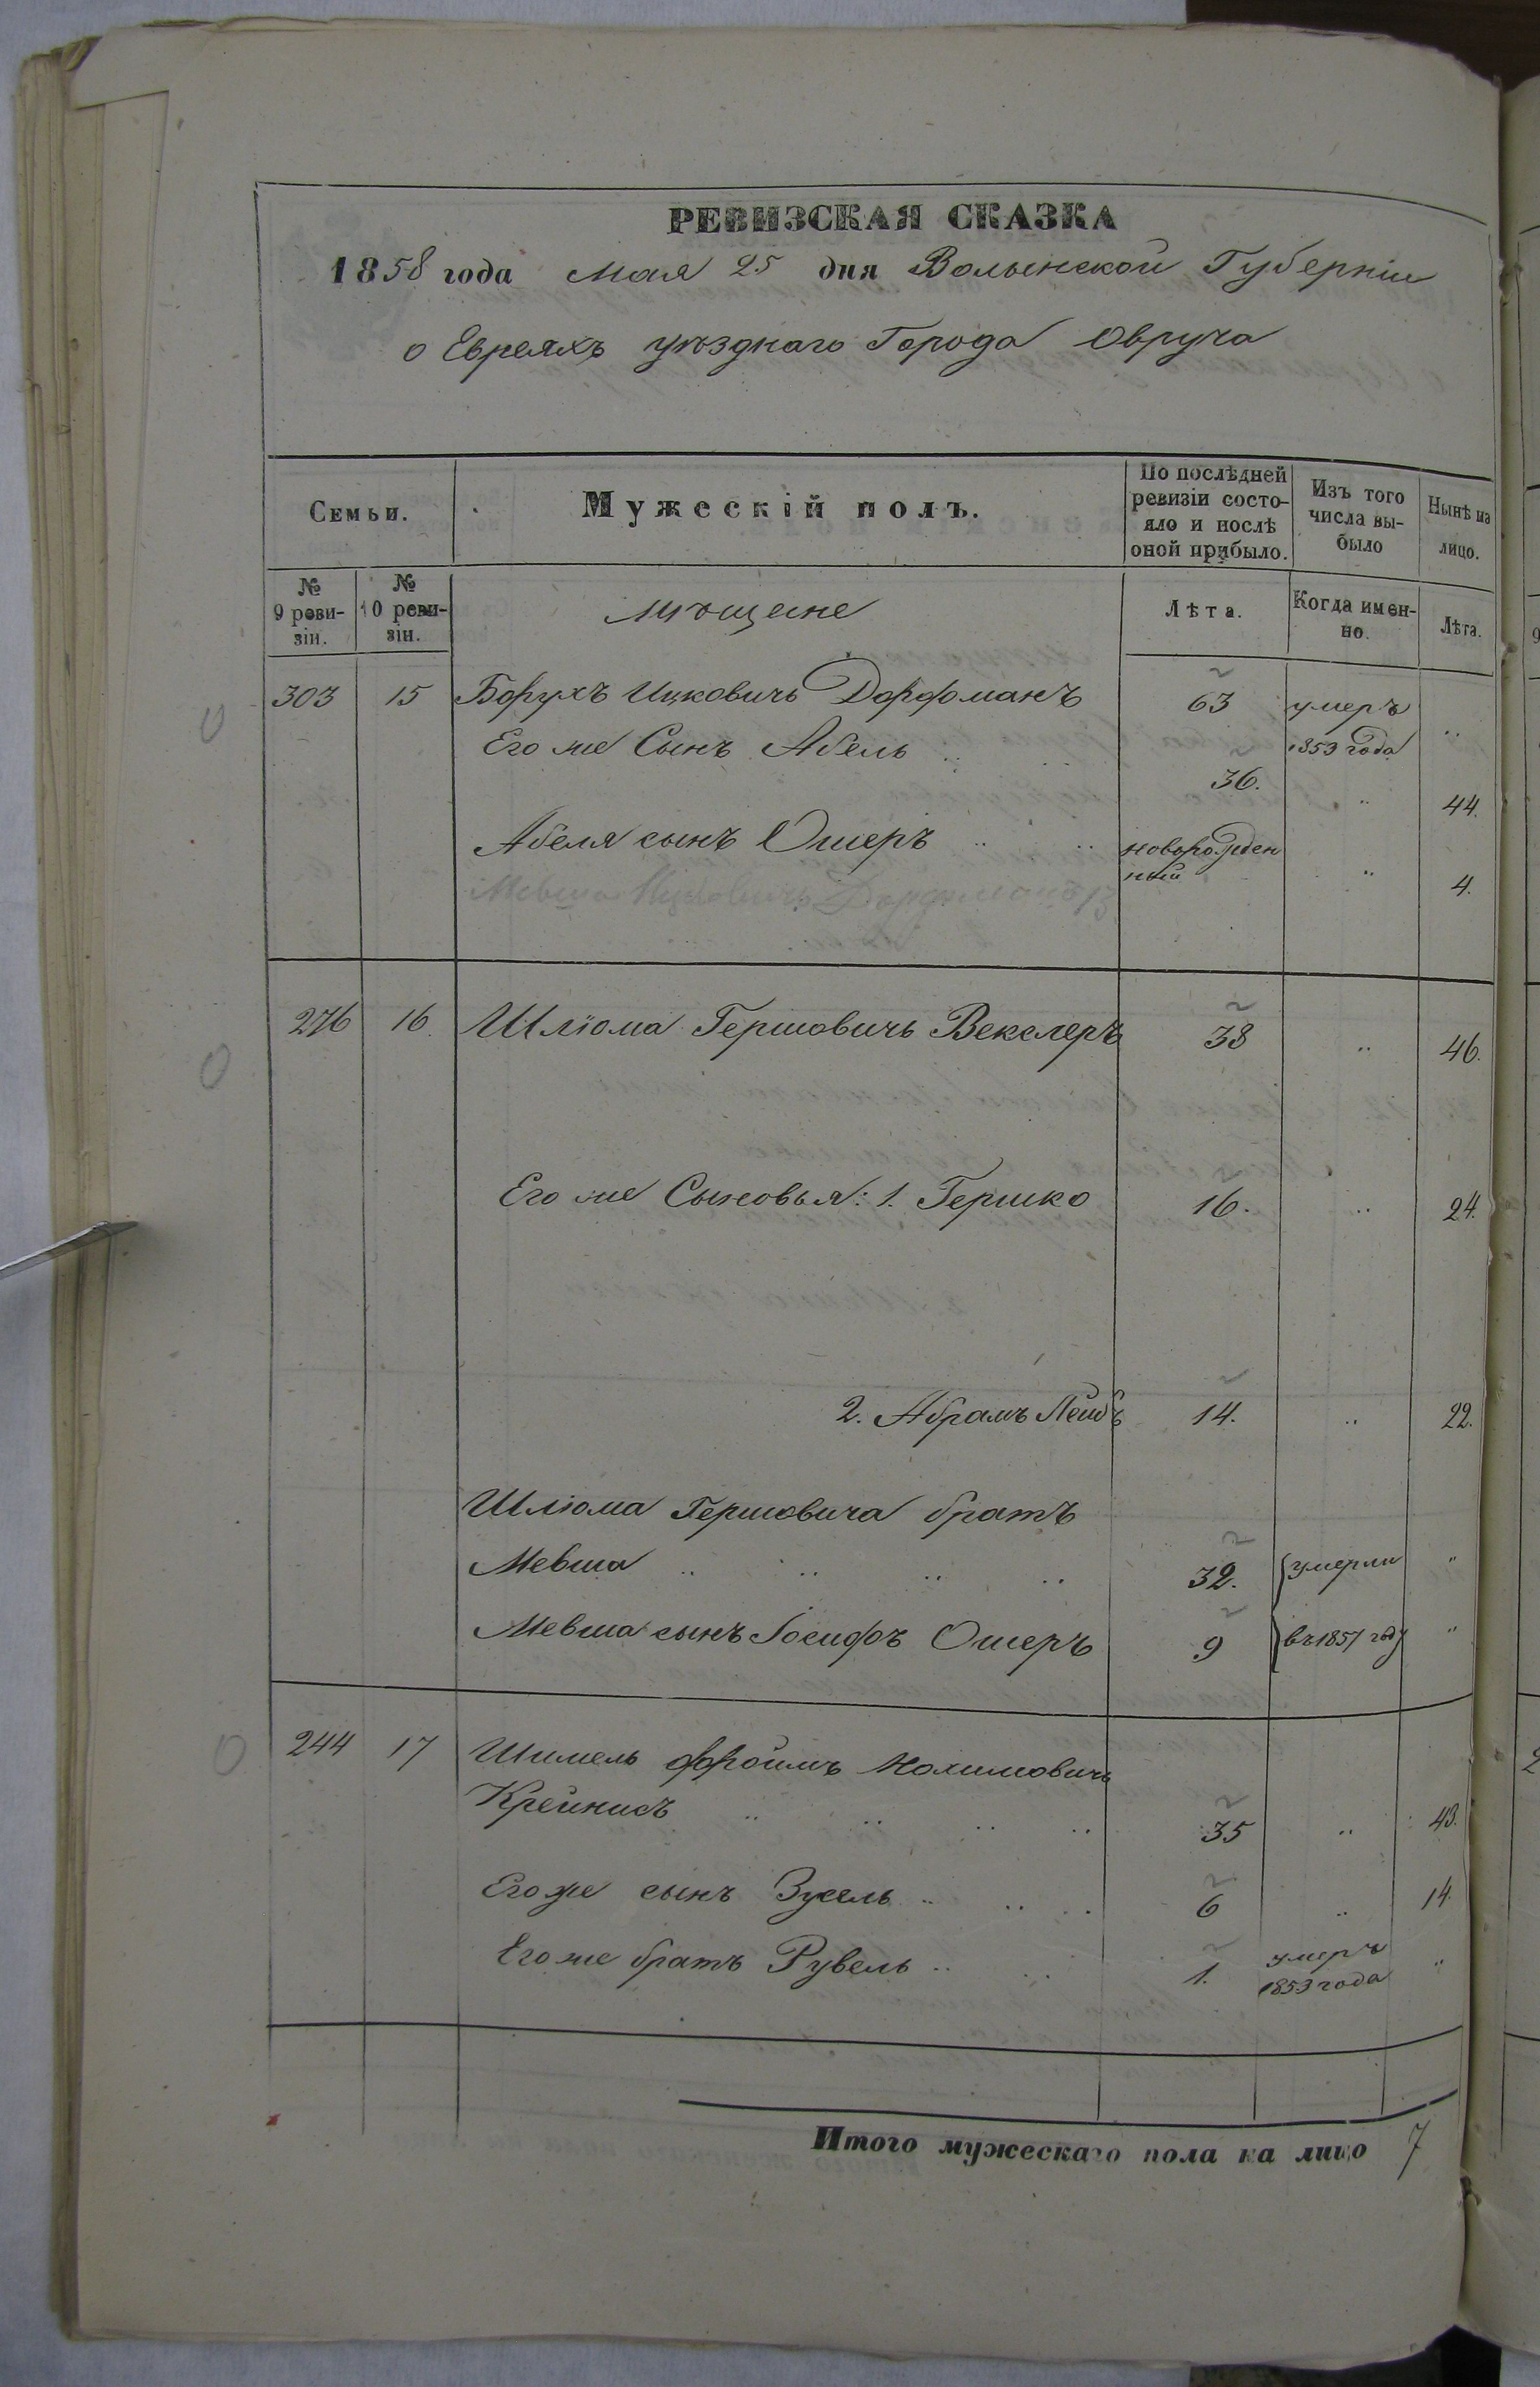 РЕВИЗСКАЯ СКАЗКА
1858 года Мая 25 дня Волынской Губерніи
о Евреяхъ уѣзднаго Города Овруча
Семьи.
Мужескій полъ.
По послѣдней
ревизіи состо-
яло и послѣ
оной прибыло.
Изъ того
числа вы-
было
Нынѣ на
лицо.
№
9 реви-
зіи.
№
10 реви-
зіи.
мѣщане
Лѣта.
Когда имен-
но.
Лѣта.
303 15 Борухъ Ицковичь Дорфманъ 63 умеръ ..
Его же Сынъ Абель .. 1853 года
36. .. 44.
Абеля сынъ Ошеръ .. .. новорожден
ный .. 4.
276 16 Шліома Гершовичь Векслеръ 38 .. 46.
Его же Сыновья: 1. Гершко 16. .. 24.
2. Абрамъ Лейбъ 14. .. 22.
Шліома Гершовича братъ
Мевша .. .. .. .. 32. умерли ..
Мевша сынъ Іосифъ Ошеръ 9 въ 1857 году ..
244 17 Шимель Фроимъ
Крейнисъ .. .. .. .. 35 .. 43.
Его же сынъ Зусель .. .. .. 6 .. 14.
Его же братъ Рувель .. .. 1. умеръ ..
1853 года
Итого мужескаго пола на лицо 7